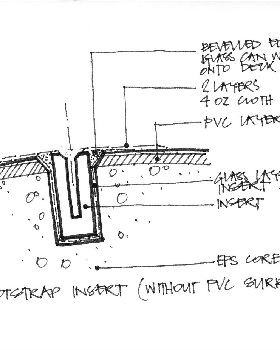 BEVELLED ED
GLASS CAN W
ONTO DECK
2 LAYERS
4 OZ CLOTH
PVC LAYER
GLASS LAY
INSERT
INSERT
EPS CORE
OTSTRAP INSERT (WITHOUT PVC SURR